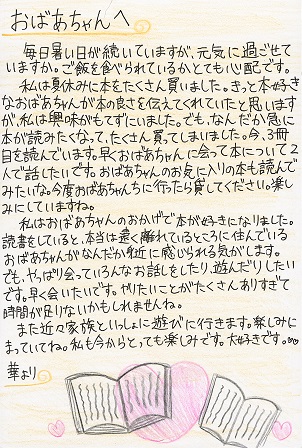 おばあちゃんへ
毎日暑い日が続いていますが、元気に過ごせて
いますか。ご飯を食べられているかとても心配です。
私は夏休みに本をたくさん買いました。きっと本好き
なおばあちゃんが本の良さを伝えてくれていたと思います
が、私は興味がもてずにいました。でも、なんだか急に
本が読みたくなって、たくさん買ってしまいました。今、3冊
目を読んでいます。早くおばあちゃんに会って本について2
人で話したいです。おばあちゃんのお気に入りの本も読んで
みたいな。今度おばあちゃんちに行ったら貸してください。楽し
みにしていますね。
私はおばあちゃんのおかげで本が好きになりました。
読書をしていると、本当は遠く離れているところに住んでいる
おばあちゃんがなんだか近に感じられる気がします。
でも、やっぱり会っていろんなお話をしたり、遊んだりしたい
です。早く会いたいです。やりたいことがたくさんありすぎて
時間が足りないかもしれませんね。
また近々家族といっしょに遊びに行きます。楽しみに
まっていてね。私も今からとっても楽しみです。大好きです。
華より